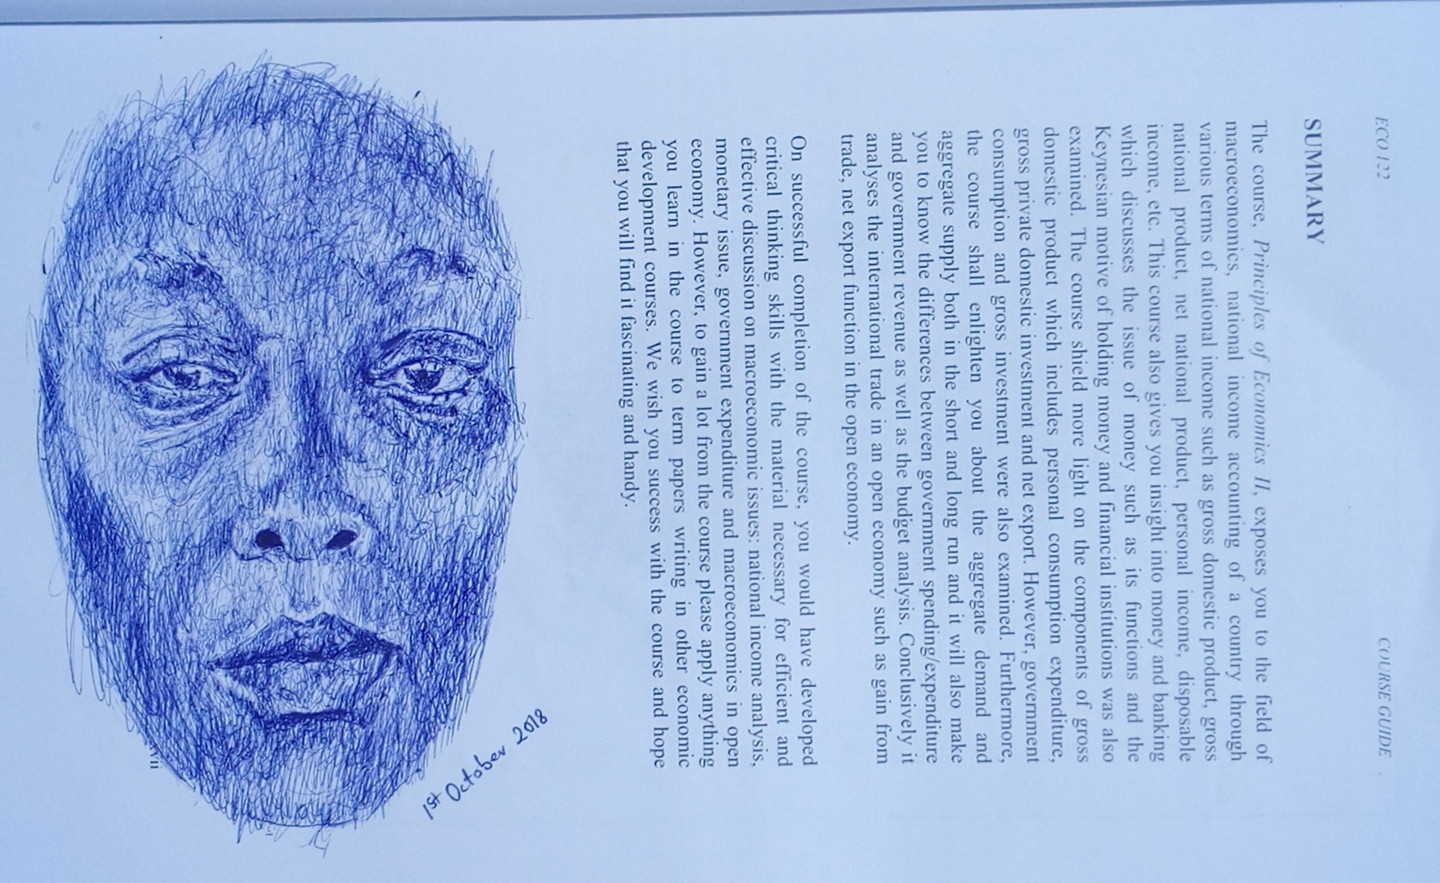 ECO 122 COURSE GUIDE
SUMMARY
The course, Principles of Economics II, exposes you to the field of
macroeconomics, national income accounting of a country through
various terms of national income such as gross domestic product, gross
national product, net national product, personal income, disposable
income, etc. This course also gives you insight into money and banking
which discusses the issue of money such as its functions and the
Keynesian motive of holding money and financial institutions was also
examined. The course shield more light on the components of gross
domestic product which includes personal consumption expenditure,
gross private domestic investment and net export. However, government
consumption and gross investment were also examined. Furthermore,
the course shall enlighten you about the aggregate demand and
aggregate supply both in the short and long run and it will also make
you to know the differences between government spending/expenditure
and government revenue as well as the budget analysis. Conclusively it
analyses the international trade in an open economy such as gain from
trade, net export function in the open economy.
On successful completion of the course, you would have developed
critical thinking skills with the material necessary for efficient and
effective discussion on macroeconomic issues: national income analysis,
monetary issue, government expenditure and macroeconomics in open
economy. However, to gain a lot from the course please apply anything
you learn in the course to term papers writing in other economic
development courses. We wish you success with the course and hope
that you will find it fascinating and handy.
1st October 2018